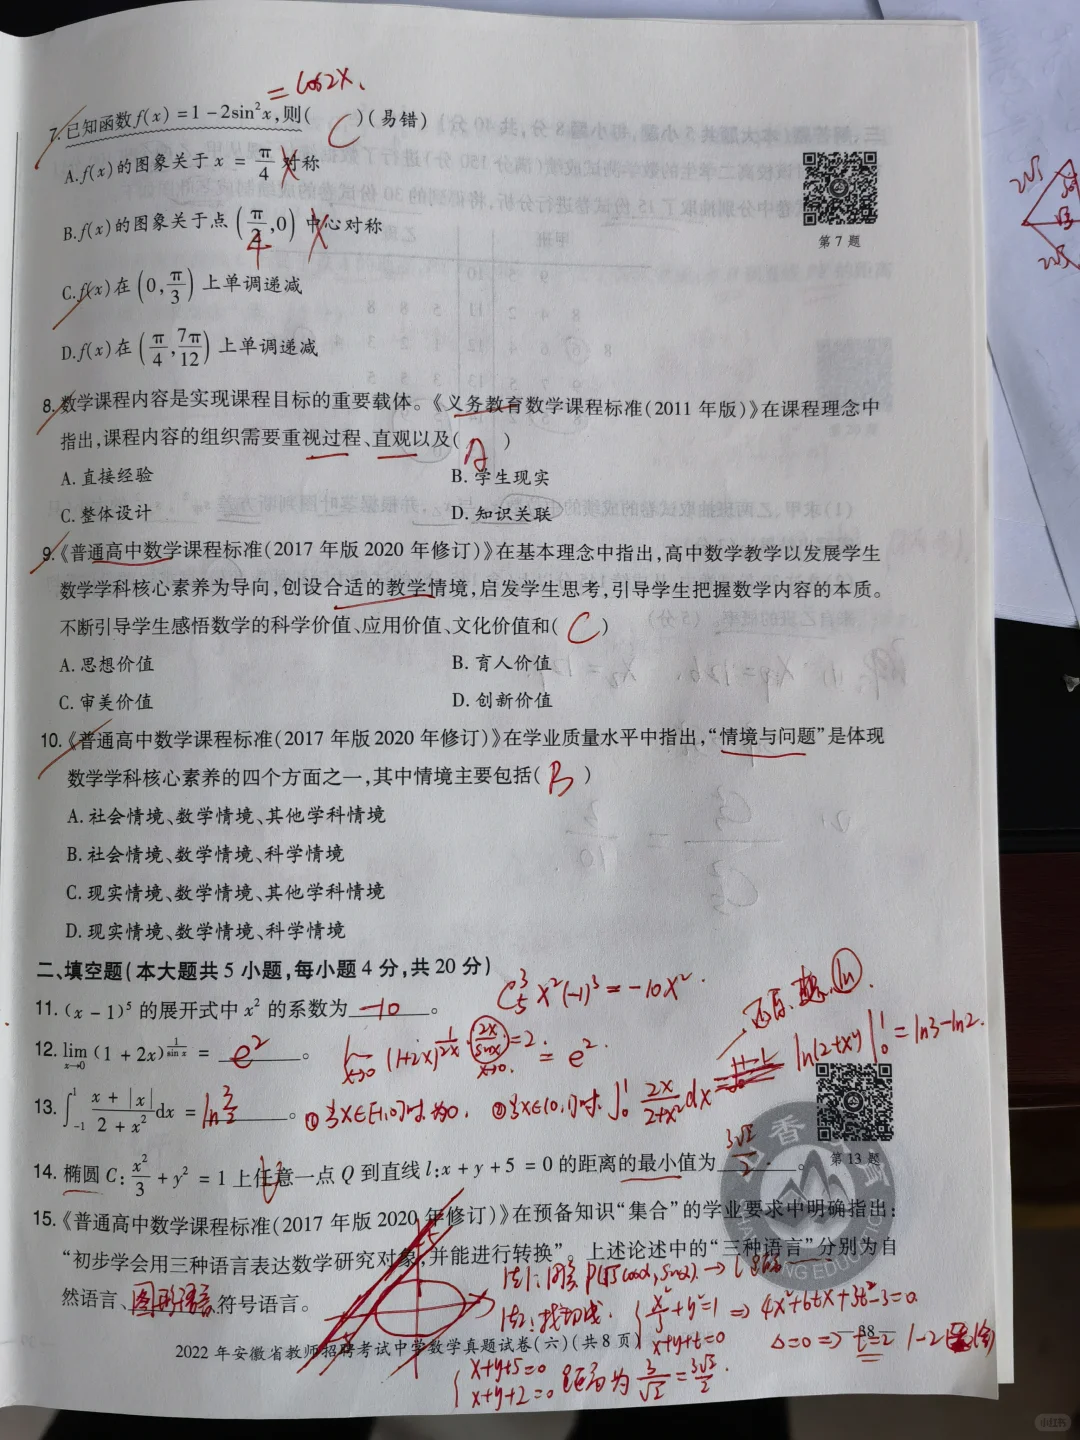 = cos2x.
7. 已知函数 f(x) = 1 - 2sin²x, 则( C )(易错)
A. f(x) 的图象关于 x = π/4 对称 ×
B. f(x) 的图象关于点 (π/2, 0) 中心对称 ×
4
C. f(x) 在 (0, π/3) 上单调递减
D. f(x) 在 (π/4, 7π/12) 上单调递减
第 7 题
8. 数学课程内容是实现课程目标的重要载体。《义务教育数学课程标准(2011 年版)》在课程理念中
指出,课程内容的组织需要重视过程、直观以及( A )
A. 直接经验 B. 学生现实
C. 整体设计 D. 知识关联
9.《普通高中数学课程标准(2017 年版 2020 年修订)》在基本理念中指出,高中数学教学以发展学生
数学学科核心素养为导向,创设合适的教学情境,启发学生思考,引导学生把握数学内容的本质。
不断引导学生感悟数学的科学价值、应用价值、文化价值和( C )
A. 思想价值 B. 育人价值
C. 审美价值 D. 创新价值
10.《普通高中数学课程标准(2017 年版 2020 年修订)》在学业质量水平中指出,“情境与问题”是体现
数学学科核心素养的四个方面之一,其中情境主要包括( B )
A. 社会情境、数学情境、其他学科情境
B. 社会情境、数学情境、科学情境
C. 现实情境、数学情境、其他学科情境
D. 现实情境、数学情境、科学情境
二、填空题(本大题共 5 小题,每小题 4 分,共 20 分)
11. (x - 1)⁵ 的展开式中 x² 的系数为 -10 。 C₅³ x²(-1)³ = -10x².
12. lim x→0 (1 + 2x)^(1/sin x) = e² 。 lim x→0 (1+2x)^(1/2x · 2x/sinx) = 2 x→0. = e².
13. ∫₋₁¹ (x + |x|)/(2 + x²) dx = ln 3/2 。 ① 当x∈[-1,0]时 为0. ② 当x∈(0,1]时. ∫₀¹ 2x/(2+x²) dx ln(2+x²)|₀¹ = ln3-ln2.
第 13 题
14. 椭圆 C: x²/3 + y² = 1 上任意一点 Q 到直线 l: x + y + 5 = 0 的距离的最小值为 3√2/2 。
15.《普通高中数学课程标准(2017 年版 2020 年修订)》在预备知识“集合”的学业要求中明确指出:
“初步学会用三种语言表达数学研究对象,并能进行转换”。上述论述中的“三种语言”分别为自
然语言、图形语言、符号语言。
法1: 设 P(√3cosα, sinα). → l 距离
法2: 找切线. { x²/3 + y² = 1 x+y+t=0 ⇒ 4x²+6tx+3t²-3=0
Δ=0 ⇒ t=2
{ x+y+5=0 x+y+2=0 距离为 3/√2 = 3√2/2.
2022 年安徽省教师招聘考试中学数学真题试卷(六)(共 8 页) — 88 —
小红书